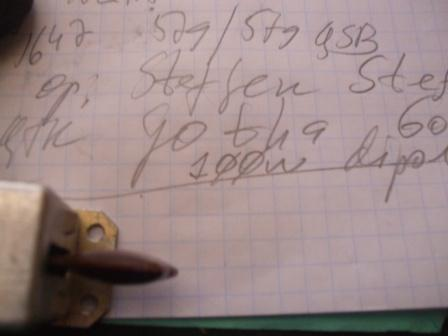 1647 579/579 QSB
op: Steffen Stef
qth gotha 60
1øøw dipol